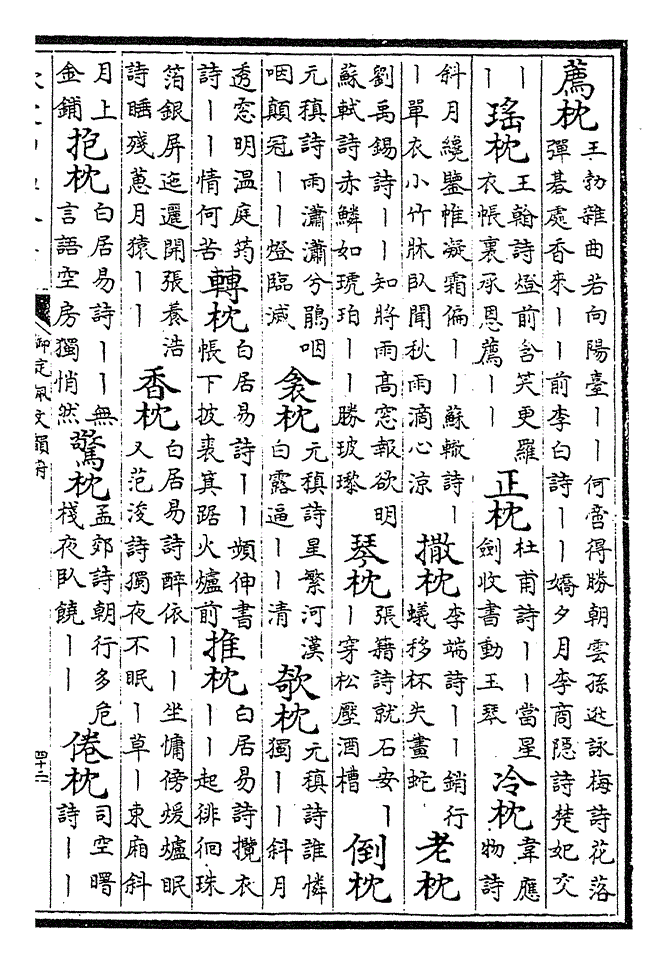 薦枕
王勃雜曲若向陽臺丨丨何啻得勝朝雲孫逖詠梅詩花落
彈碁處香來丨丨前李白詩丨丨嬌夕月李商隱詩楚妃交
丨
丨
瑤枕
王翰詩燈前含笑更羅
衣帳裏承恩薦丨丨
正枕
杜甫詩丨丨當星
劍收書動玉琴
冷枕
韋應
物詩
斜月纔鑒帷凝霜偏丨丨蘇轍詩丨
丨單衣小竹牀臥聞秋雨滴心涼
撒枕
李端詩丨丨銷行
蟻移杯失畫蛇
老枕
劉禹錫詩丨丨知將雨高窓報欲明
蘇軾詩赤鱗如琥珀丨丨勝玻瓈
琴枕
張籍詩就石安丨
丨穿松壓酒槽
倒枕
元稹詩雨瀟瀟兮鵑咽
咽顛冠丨丨燈臨滅
衾枕
元稹詩星繁河漢
白露逼丨丨清
欹枕
元稹詩誰憐
獨丨丨斜月
透窓明溫庭筠
詩丨丨情何苦
轉枕
白居易詩丨丨頻伸書
帳下披裘箕踞火爐前
推枕
白居易詩攬衣
丨丨起徘徊珠
箔銀屏迤邐開張養浩
詩睡殘蕙月猿丨丨
香枕
白居易詩醉依丨丨坐慵傍煖爐眠
又范浚詩獨夜不眠丨草丨東廂斜
月上
金鋪
抱枕
白居易詩丨丨無
言語空房獨悄然
驚枕
孟郊詩朝行多危
棧夜臥饒丨丨
倦枕
司空曙
詩丨丨
御定佩文韻府
四十三